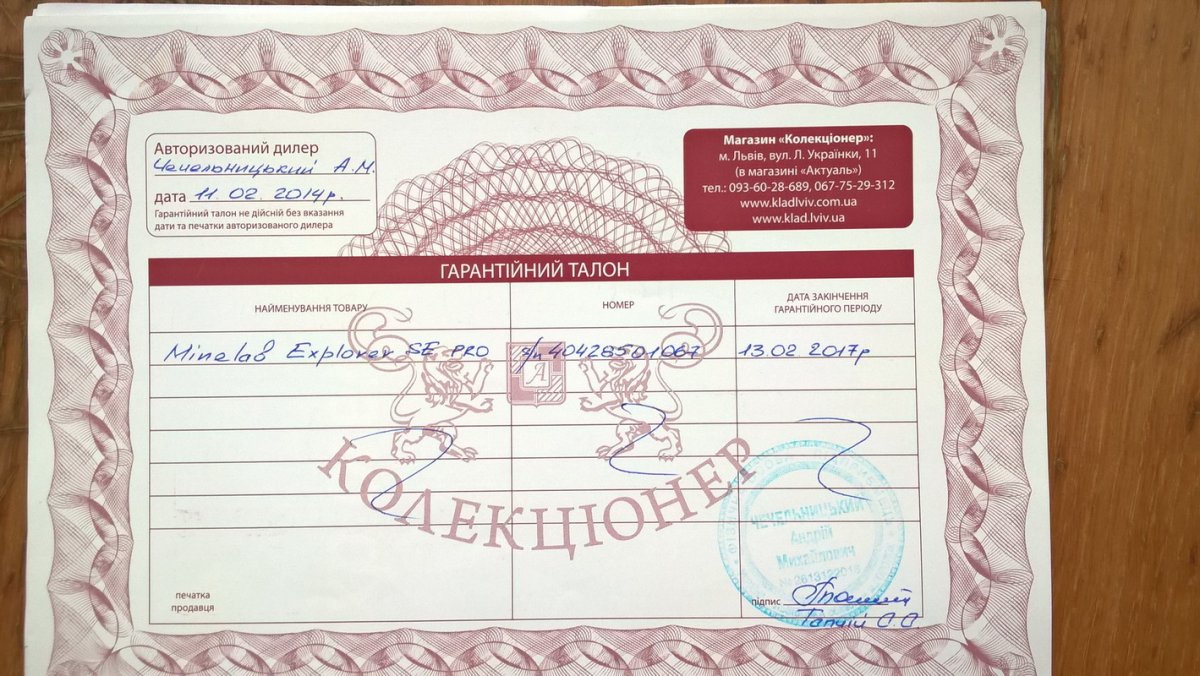 Авторизований дилер
Чечельницький А.М.
дата 11.02.2014р.
Гарантійний талон не дійсній без вказання
дати та печатки авторизованого дилера
Магазин «Колекціонер»:
м. Львів, вул. Л. Українки, 11
(в магазині «Актуаль»)
тел.: 093-60-28-689, 067-75-29-312
www.kladlviv.com.ua
www.klad.lviv.ua
ГАРАНТІЙНИЙ ТАЛОН
НАЙМЕНУВАННЯ ТОВАРУ
НОМЕР
ДАТА ЗАКІНЧЕННЯ
ГАРАНТІЙНОГО ПЕРІОДУ
Minelab Explorer SE PRO
з/н 40428501067
13.02.2017р
А
КОЛЕКЦІОНЕР
ЧЕЧЕЛЬНИЦЬКИЙ
Андрій
Михайлович
печатка
продавця
підпис